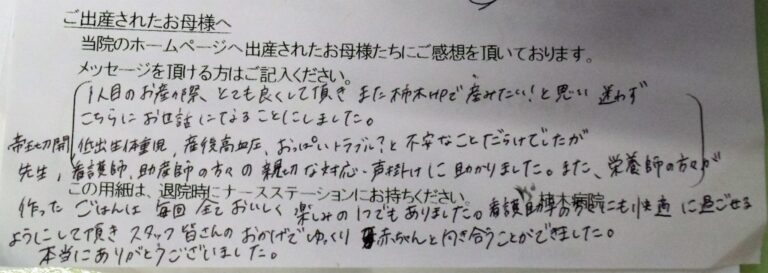 ご出産されたお母様へ
当院のホームページへ出産されたお母様たちにご感想を頂いております。
メッセージを頂ける方はご記入ください。
1人目のお産の際、とても良くして頂き また柿木HPで産みたい!と思い 迷わず
こちらにお世話になることにしました。
帝王切開、低出生体重児、産後高血圧、おっぱいトラブル?と不安なことだらけでしたが
先生、看護師、助産師の方々の親切な対応・声掛けに助かりました。また、栄養師の方々が
この用紙は、退院時にナースステーションにお持ちください。 柿木病院
作った ごはんは 毎回 全ておいしく 楽しみの1つでもありました。看護助手の にも快適に過ごせる
ようにして頂き スタッフ皆さんの おかげでゆっくり 赤ちゃんと向き合うことができました。
本当にありがとうございました。